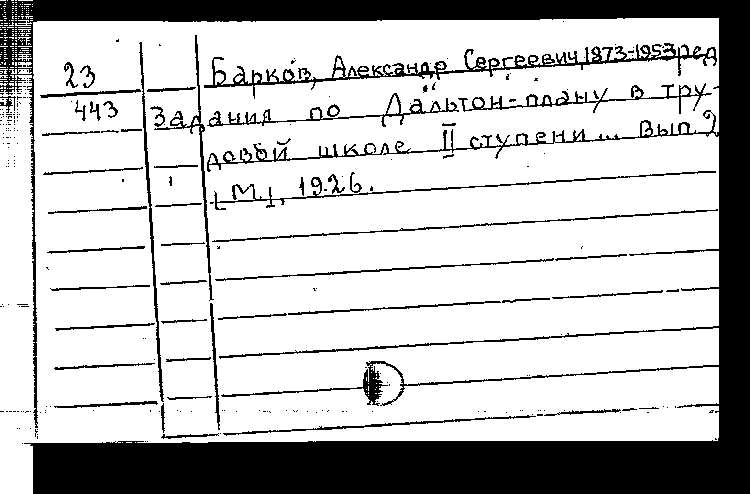 23 Барков, Александр Сергеевич, 1873-1953, ред
443 Задания по Дальтон-плану в тру-
довой школе II ступени... Вып. 2
[М.], 1926.